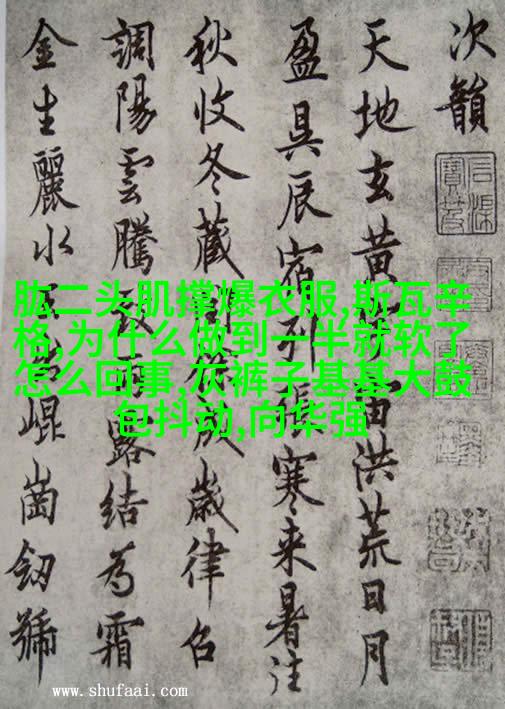 次韻
天地玄黄宙洪荒日月
盈昃辰宿列張寒来暑往
秋收冬藏成歲律召
調陽雲騰露結為霜
金生麗水崐崗劒號
肱二头肌撑爆衣服,斯瓦辛
格,为什么做到一半就软了
怎么回事,灰裤子基基大鼓
包抖动,向华强
www.shufaai.com